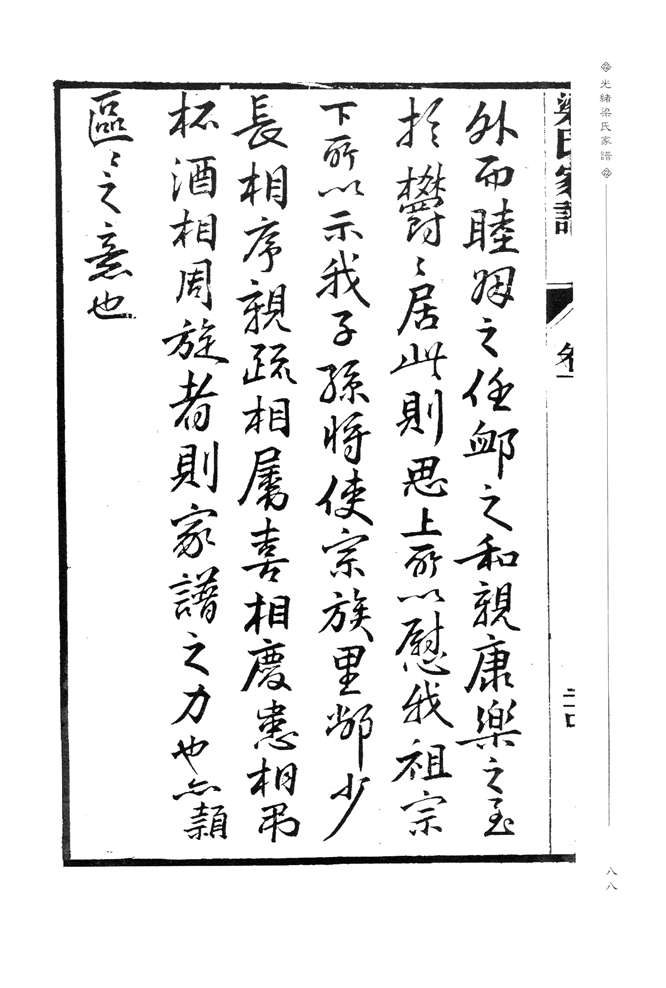 光緒梁氏家譜
八八
梁氏家譜
卷一
二十四
外而睦婣之任䘏之和親康樂之至
於欝〻居此則思上所以慰我祖宗
下所以示我子孫將使宗族里鄰少
長相序親疏相屬喜相慶患相弔
杯酒相周旋者則家譜之力也亦
區〻之意也